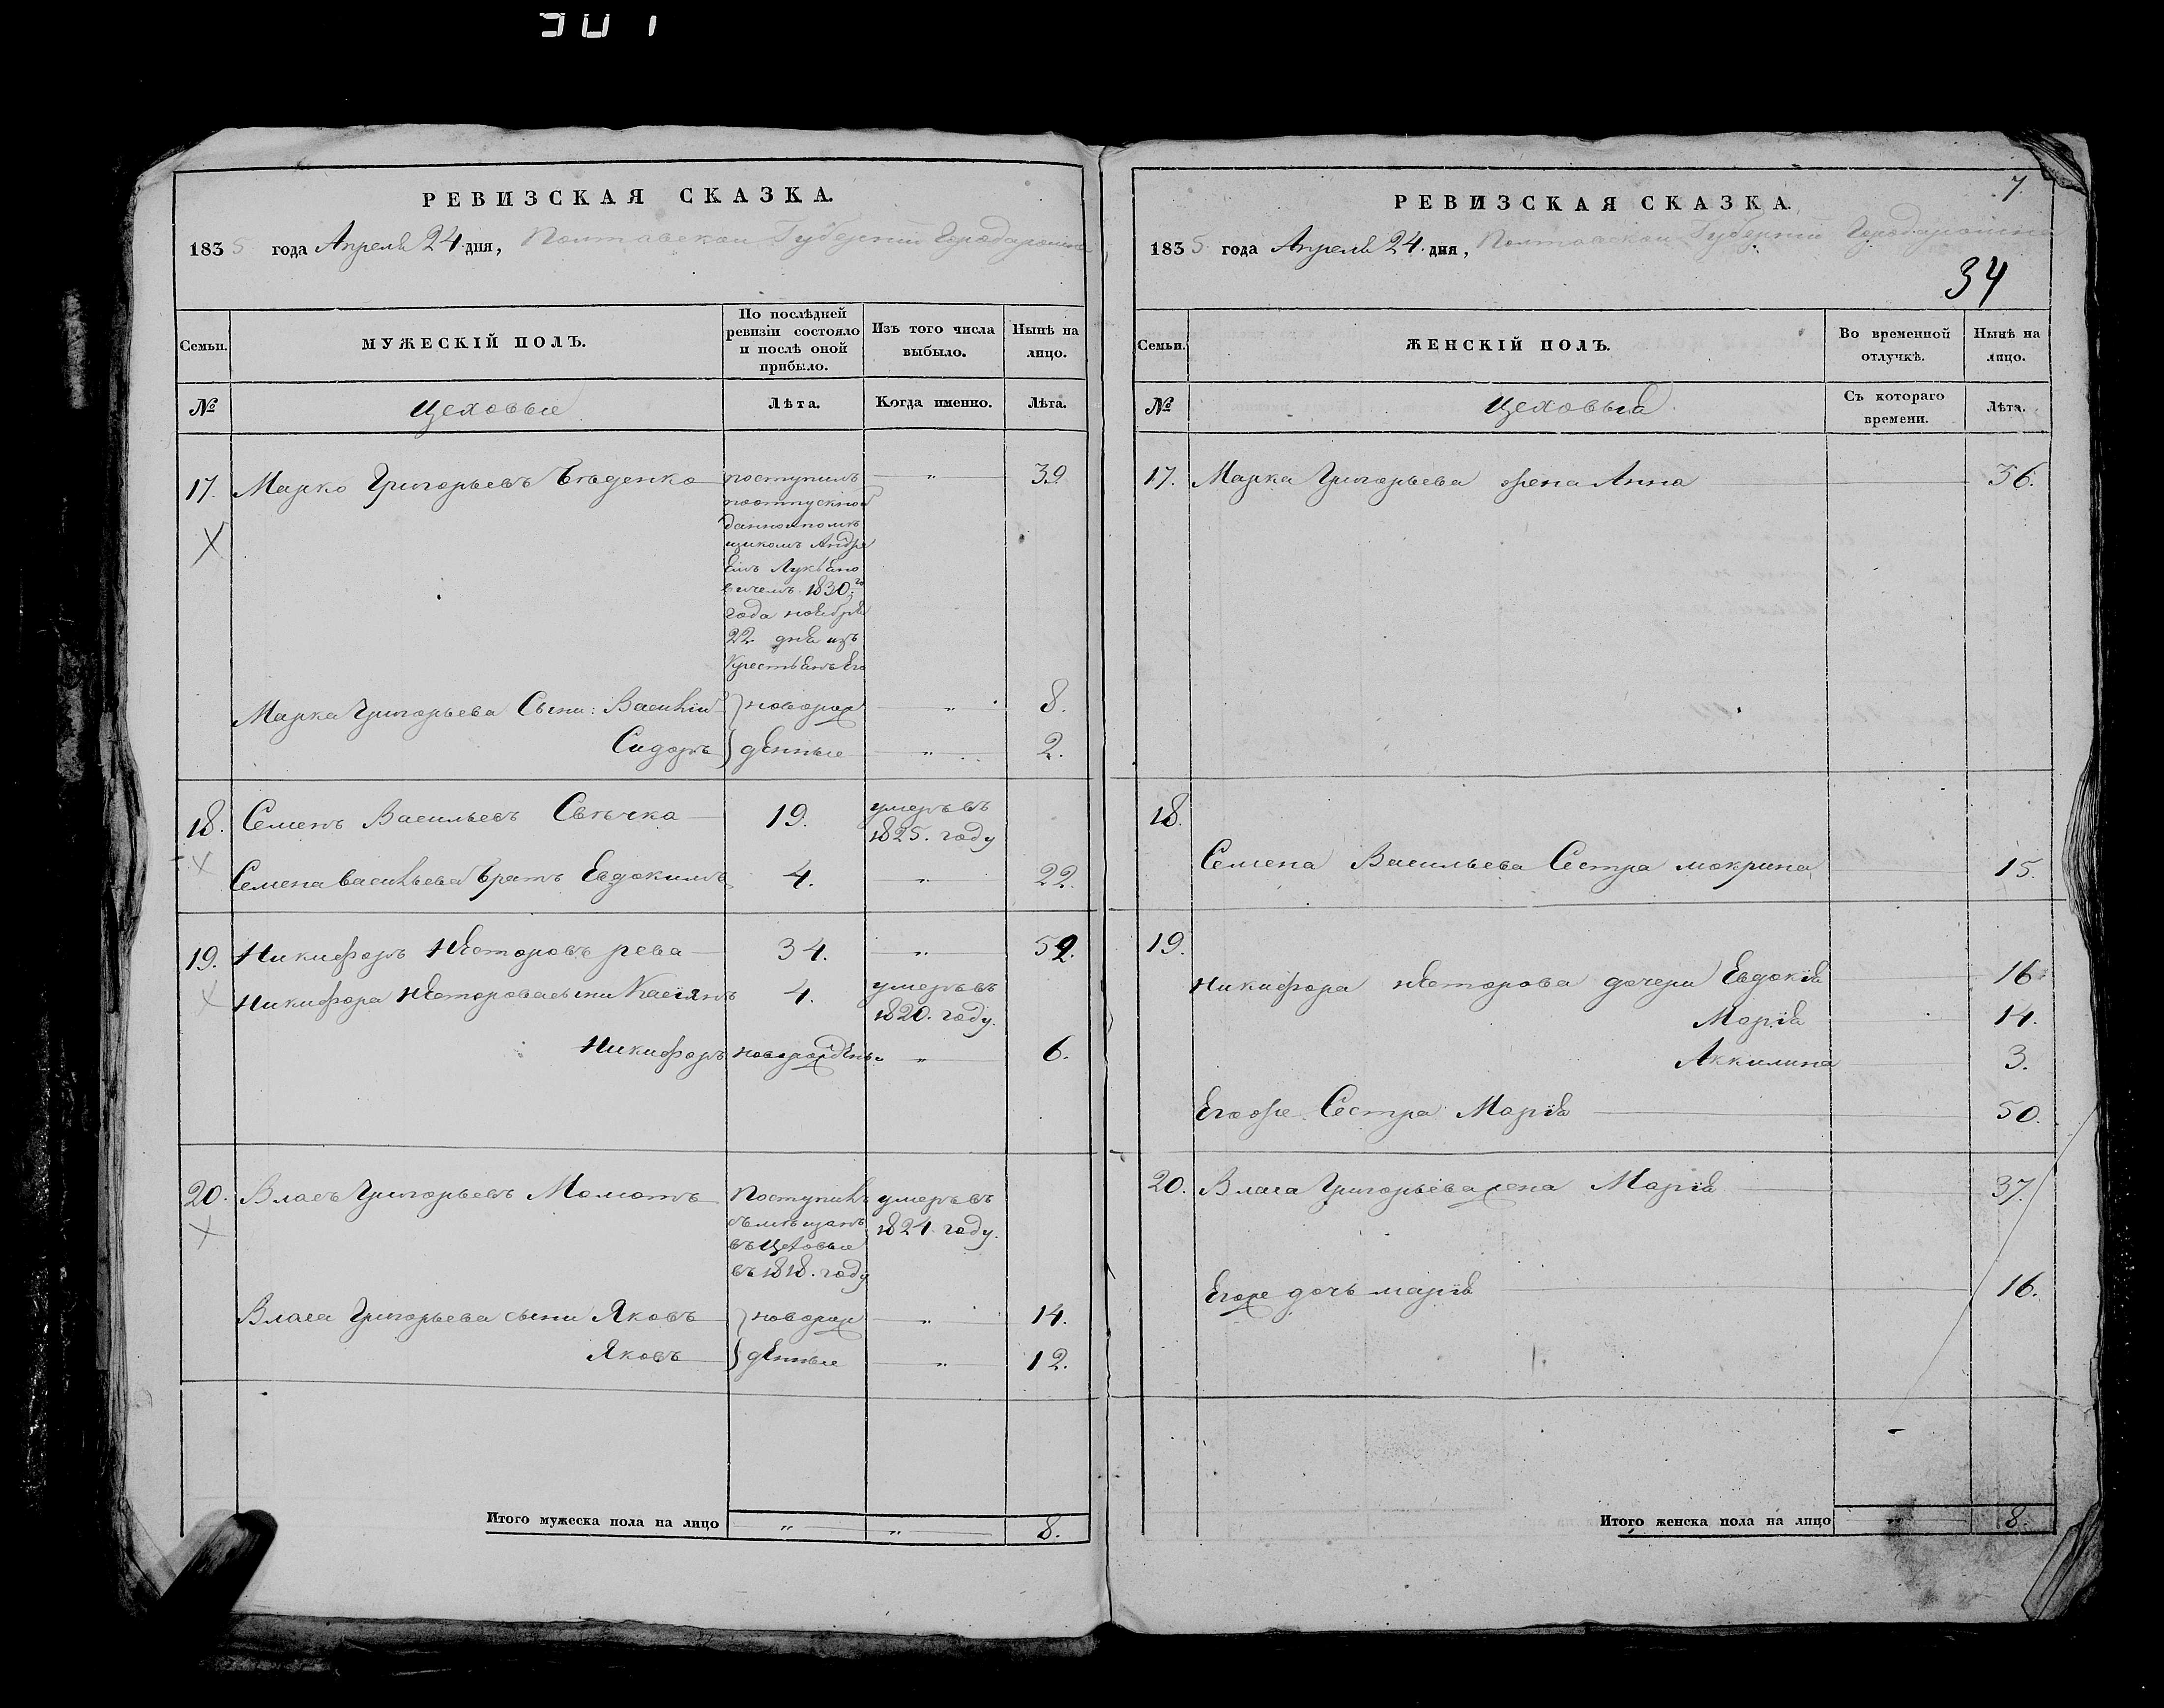 РЕВИЗСКАЯ СКАЗКА.
1835 года Апреля 24. дня, Полтавской Губернии Города
Семьи.
МУЖЕСКІЙ ПОЛЪ.
По послѣдней
ревизіи состояло
и послѣ оной
прибыло.
Изъ того числа
выбыло.
Нынѣ на
лицо.
№
Цеховые
Лѣта.
Когда именно.
Лѣта.
17. Марко Григорьевъ Бѣденко поступилъ " 39
поотпускной
данной помѣ
щикомъ Андре
емъ Лукьяно
вичемъ 1830:го
года ноября
22 дня изъ
Крестьянъ его
Марка Григорьева Сыны: Василій новорож " 8.
Сидоръ денные " 2.
18. Семенъ Васильевъ Свѣчка 19. умеръ въ
1825. году
Семена васильева братъ Евдокимъ 4. " 22.
19. Никифоръ Несторовъ рева 34. " 52.
Никифора Несторова сыны Касіянъ 4. умеръ въ
1820. году.
Никифоръ новорожден. " 6.
20. Власъ Григорьевъ Момотъ Поступилъ умеръ въ
съ мѣщанъ 1824. году.
въ Цеховые
въ 1818. году
Власа Григорьева сыны Яковъ новорож " 14.
Яковъ денные " 12.
Итого мужеска пола на лицо " " 8.
7
РЕВИЗСКАЯ СКАЗКА.
1835 года Апреля 24. дня, Полтавской Губернии Города
34
Семьи.
ЖЕНСКІЙ ПОЛЪ.
Во временной
отлучкѣ.
Нынѣ на
лицо.
№
Цеховыя
Съ котораго
времени.
Лѣта.
17. Марка Григорьева жена Анна 36.
18.
Семена Васильева Сестра мокрина 15.
19.
Никифора несторова дочери Евдокія 16
Марія 14.
Аккилина 3.
Егоже Сестра Марія 50.
20. Власа Григорьева жена Марія 37.
Егоже дочь марія 16.
Итого женска пола на лицо 8.